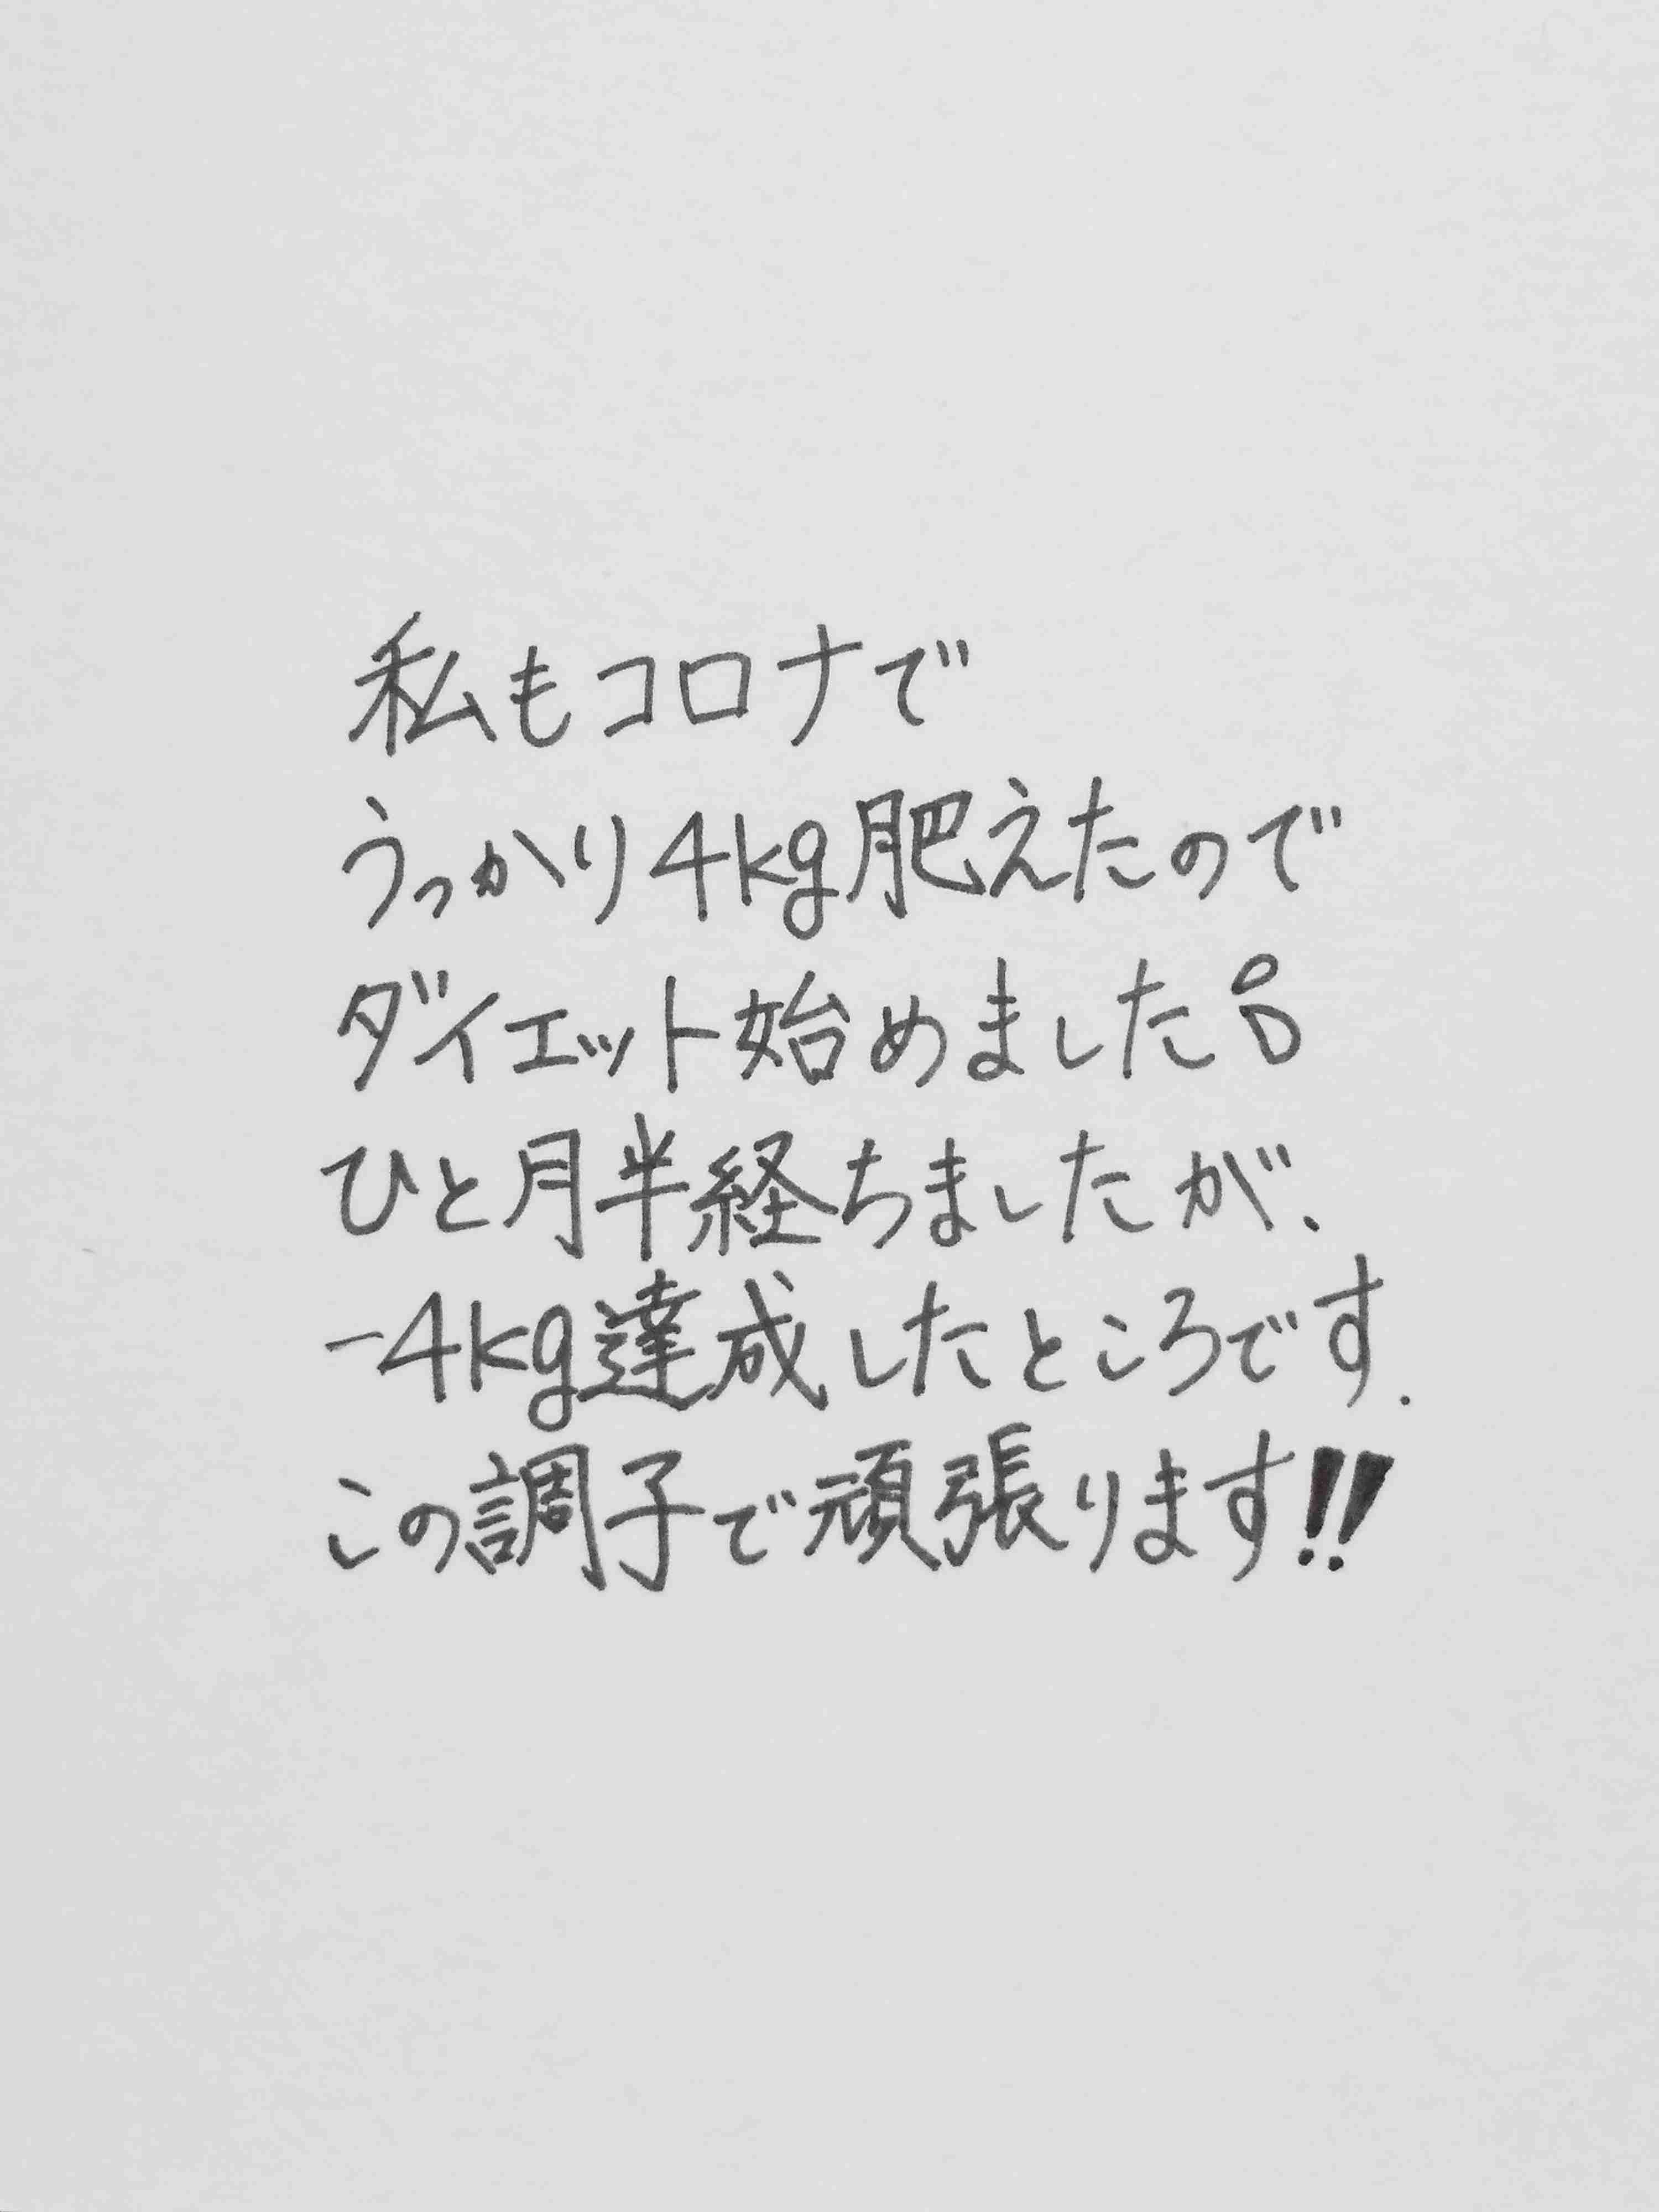 私もコロナで
うっかり4kg肥えたので
ダイエット始めました
ひと月半経ちましたが、
-4kg達成したところです.
この調子で頑張ります!!